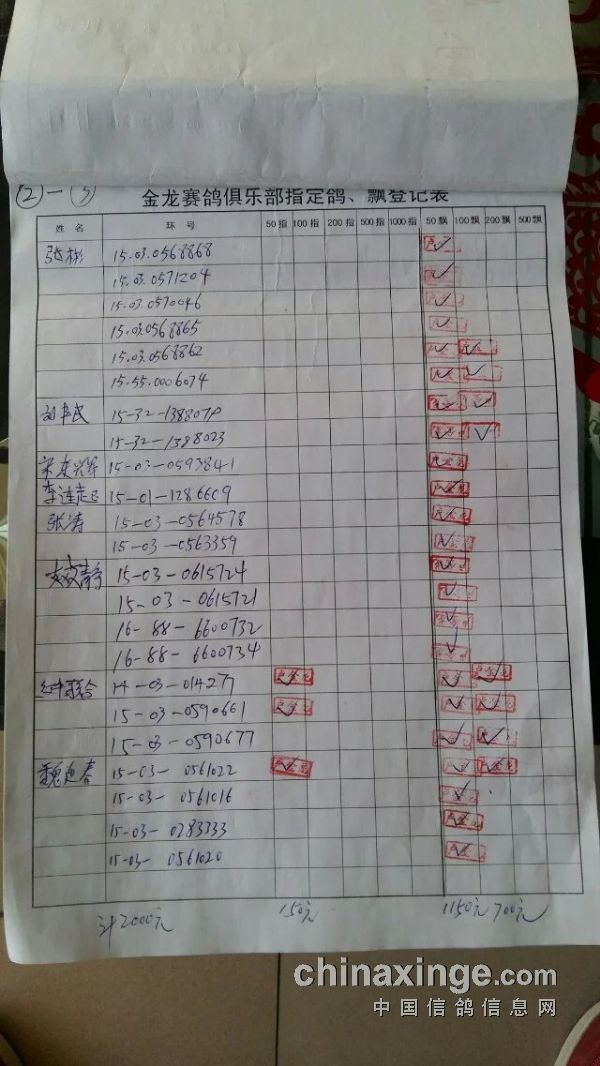 ②-⑤
金龙赛鸽俱乐部指定鸽、飘登记表
姓名 环号 50指 100指 200指 500指 1000指 50飘 100飘 200飘 500飘
张彬 15.03.0568868
15.03.0571204
15.03.0570046
15.03.0568865
15.03.0568862
15.55.0006074
15-32-1388078
15-32-1388023
15-03-0593841
15-01-1286609
张涛 15-03-0564578
15-03-0563359
15-03-0615724
15-03-0615721
16-88-6600732
16-88-6600734
14-03-014277
15-03-0590661
15-03-0590677
魏迎春 15-03-0561022
15-03-0561016
15-03-0283333
15-03-0561020
计2000元 150元 1150元 700元
chinaxinge.com
中国信鸽信息网